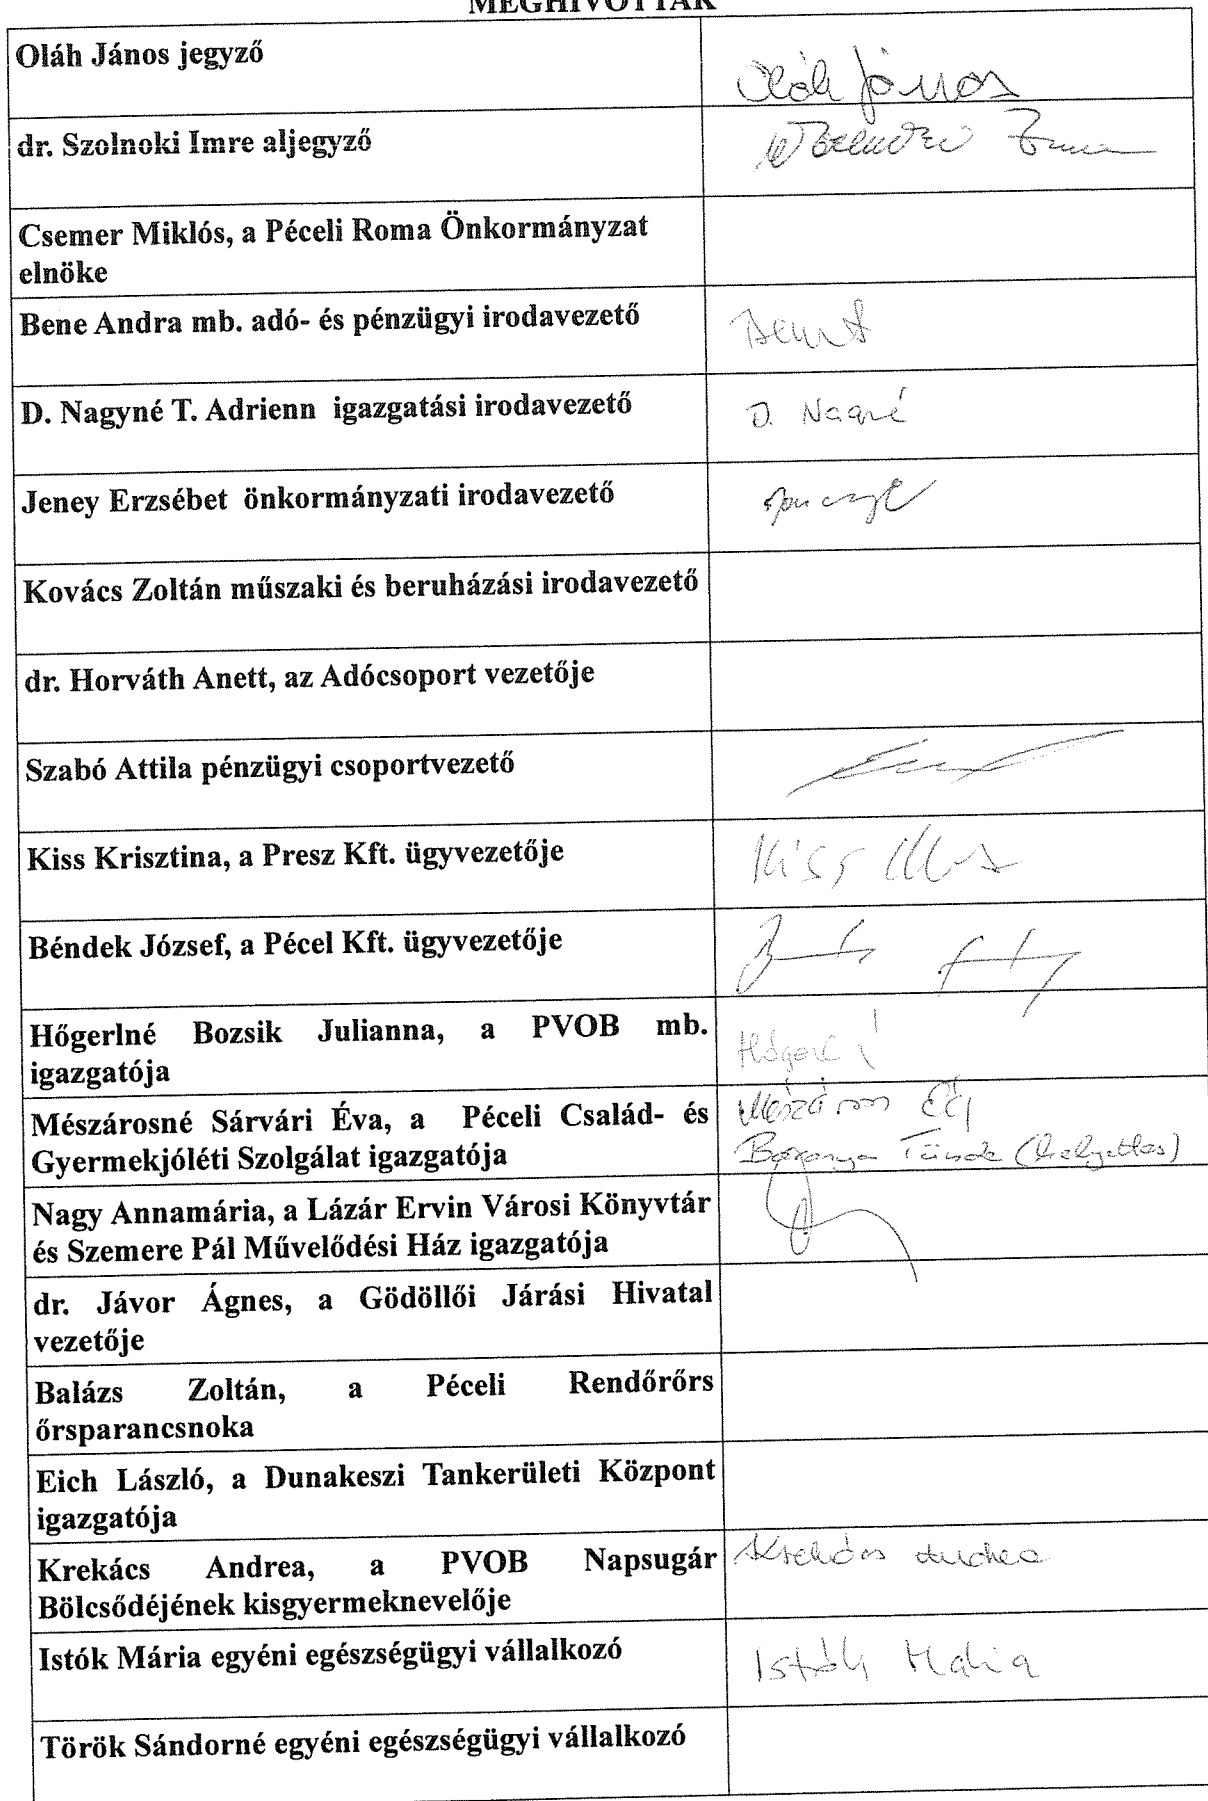 MEGHÍVOTTAK
Oláh János jegyző
Oláh János
dr. Szolnoki Imre aljegyző
Imre
Csemer Miklós, a Péceli Roma Önkormányzat
elnöke
Bene Andra mb. adó- és pénzügyi irodavezető
D. Nagyné T. Adrienn igazgatási irodavezető
D. Nagyné
Jeney Erzsébet önkormányzati irodavezető
Kovács Zoltán műszaki és beruházási irodavezető
dr. Horváth Anett, az Adócsoport vezetője
Szabó Attila pénzügyi csoportvezető
Kiss Krisztina, a Presz Kft. ügyvezetője
Kiss
Béndek József, a Pécel Kft. ügyvezetője
Hőgerlné Bozsik Julianna, a PVOB mb.
igazgatója
Mészárosné Sárvári Éva, a Péceli Család- és
Gyermekjóléti Szolgálat igazgatója
(helyettes)
Nagy Annamária, a Lázár Ervin Városi Könyvtár
és Szemere Pál Művelődési Ház igazgatója
dr. Jávor Ágnes, a Gödöllői Járási Hivatal
vezetője
Balázs Zoltán, a Péceli Rendőrőrs
őrsparancsnoka
Eich László, a Dunakeszi Tankerületi Központ
igazgatója
Krekács Andrea, a PVOB Napsugár
Bölcsődéjének kisgyermeknevelője
Krekács Andrea
Istók Mária egyéni egészségügyi vállalkozó
Istók Mária
Török Sándorné egyéni egészségügyi vállalkozó